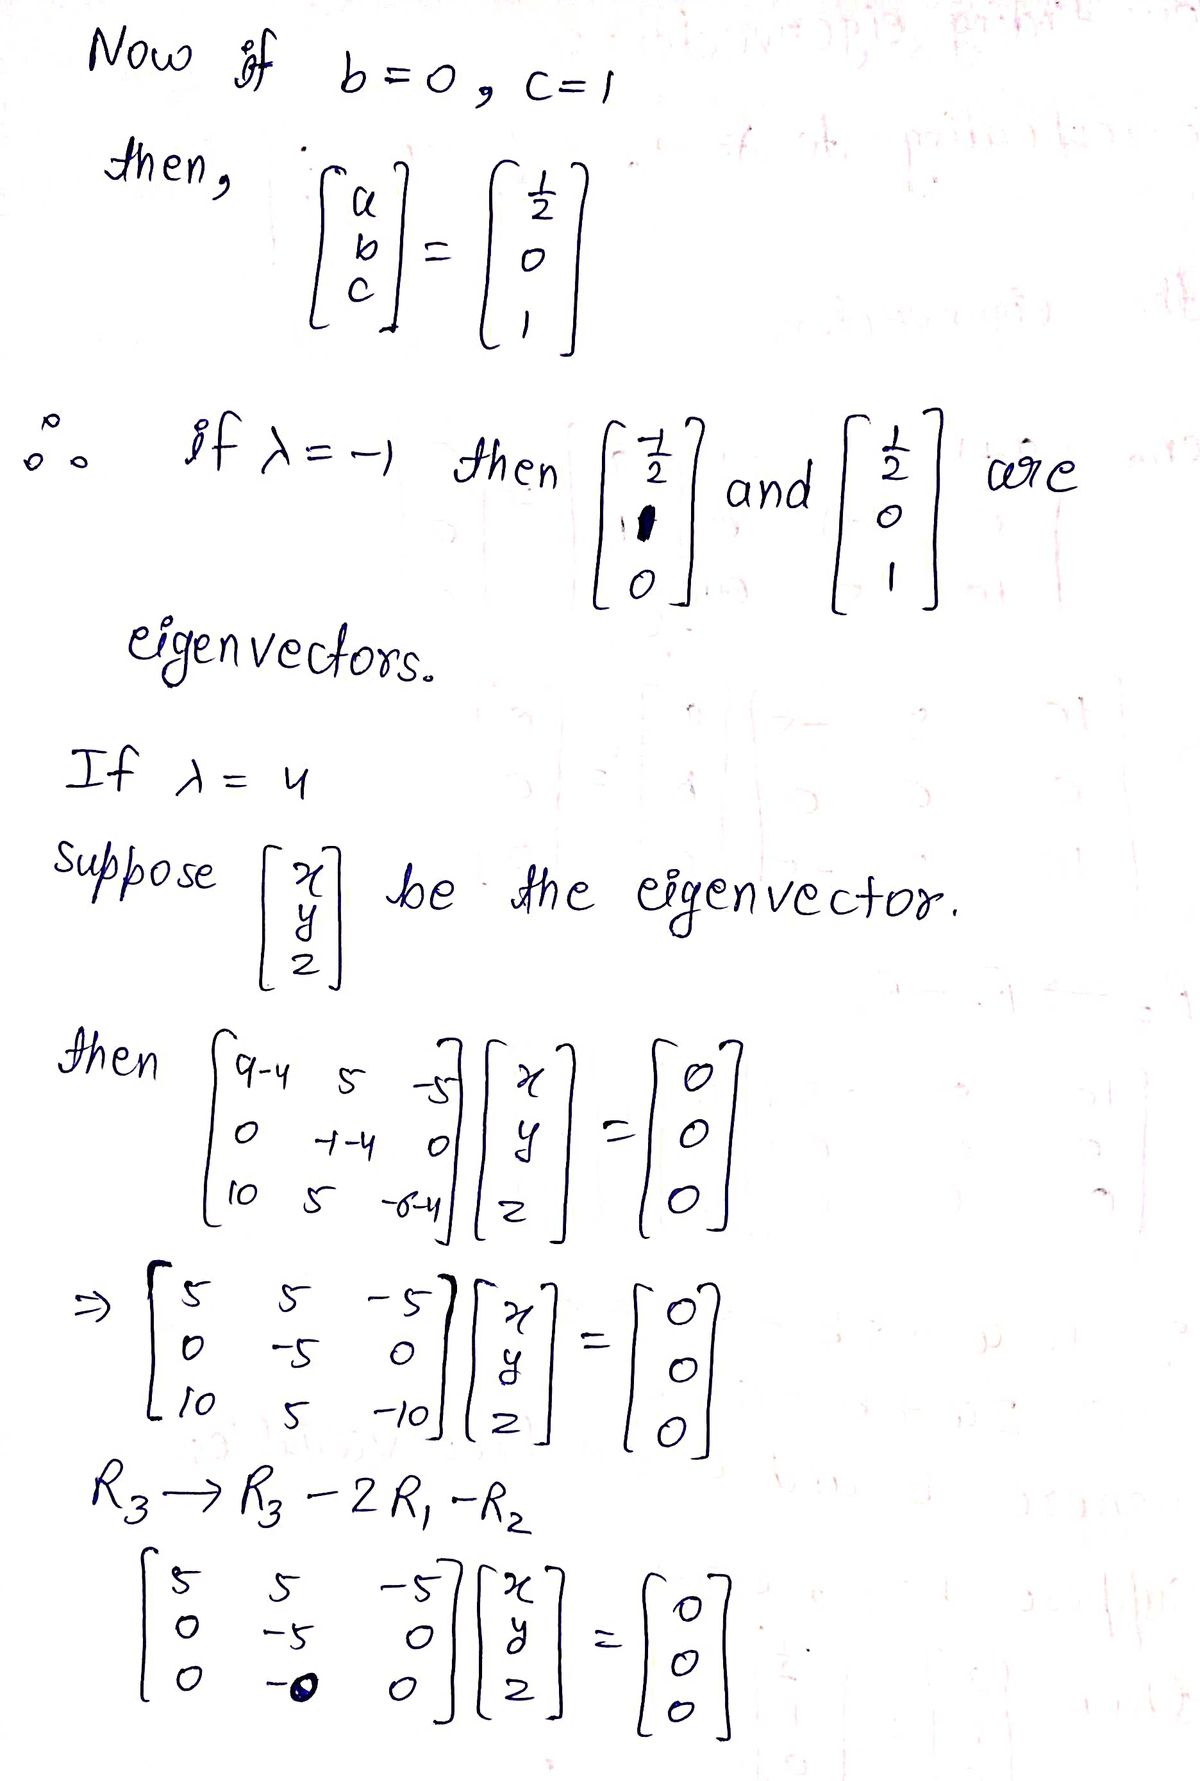 Now if b = 0, c = 1
then, [a b c] = [1/2 0 1]
∴ if λ = -1 then [-1/2 1 0] and [1/2 0 1] are
eigenvectors.
If λ = 4
suppose [x y z] be the eigenvector.
then [9-4 5 -5
0 -1-4 0
10 5 -6-4] [x y z] = [0 0 0]
⇒ [5 5 -5
0 -5 0
10 5 -10] [x y z] = [0 0 0]
R₃ → R₃ - 2R₁ - R₂
[5 5 -5
0 -5 0
0 -0 0] [x y z] = [0 0 0]